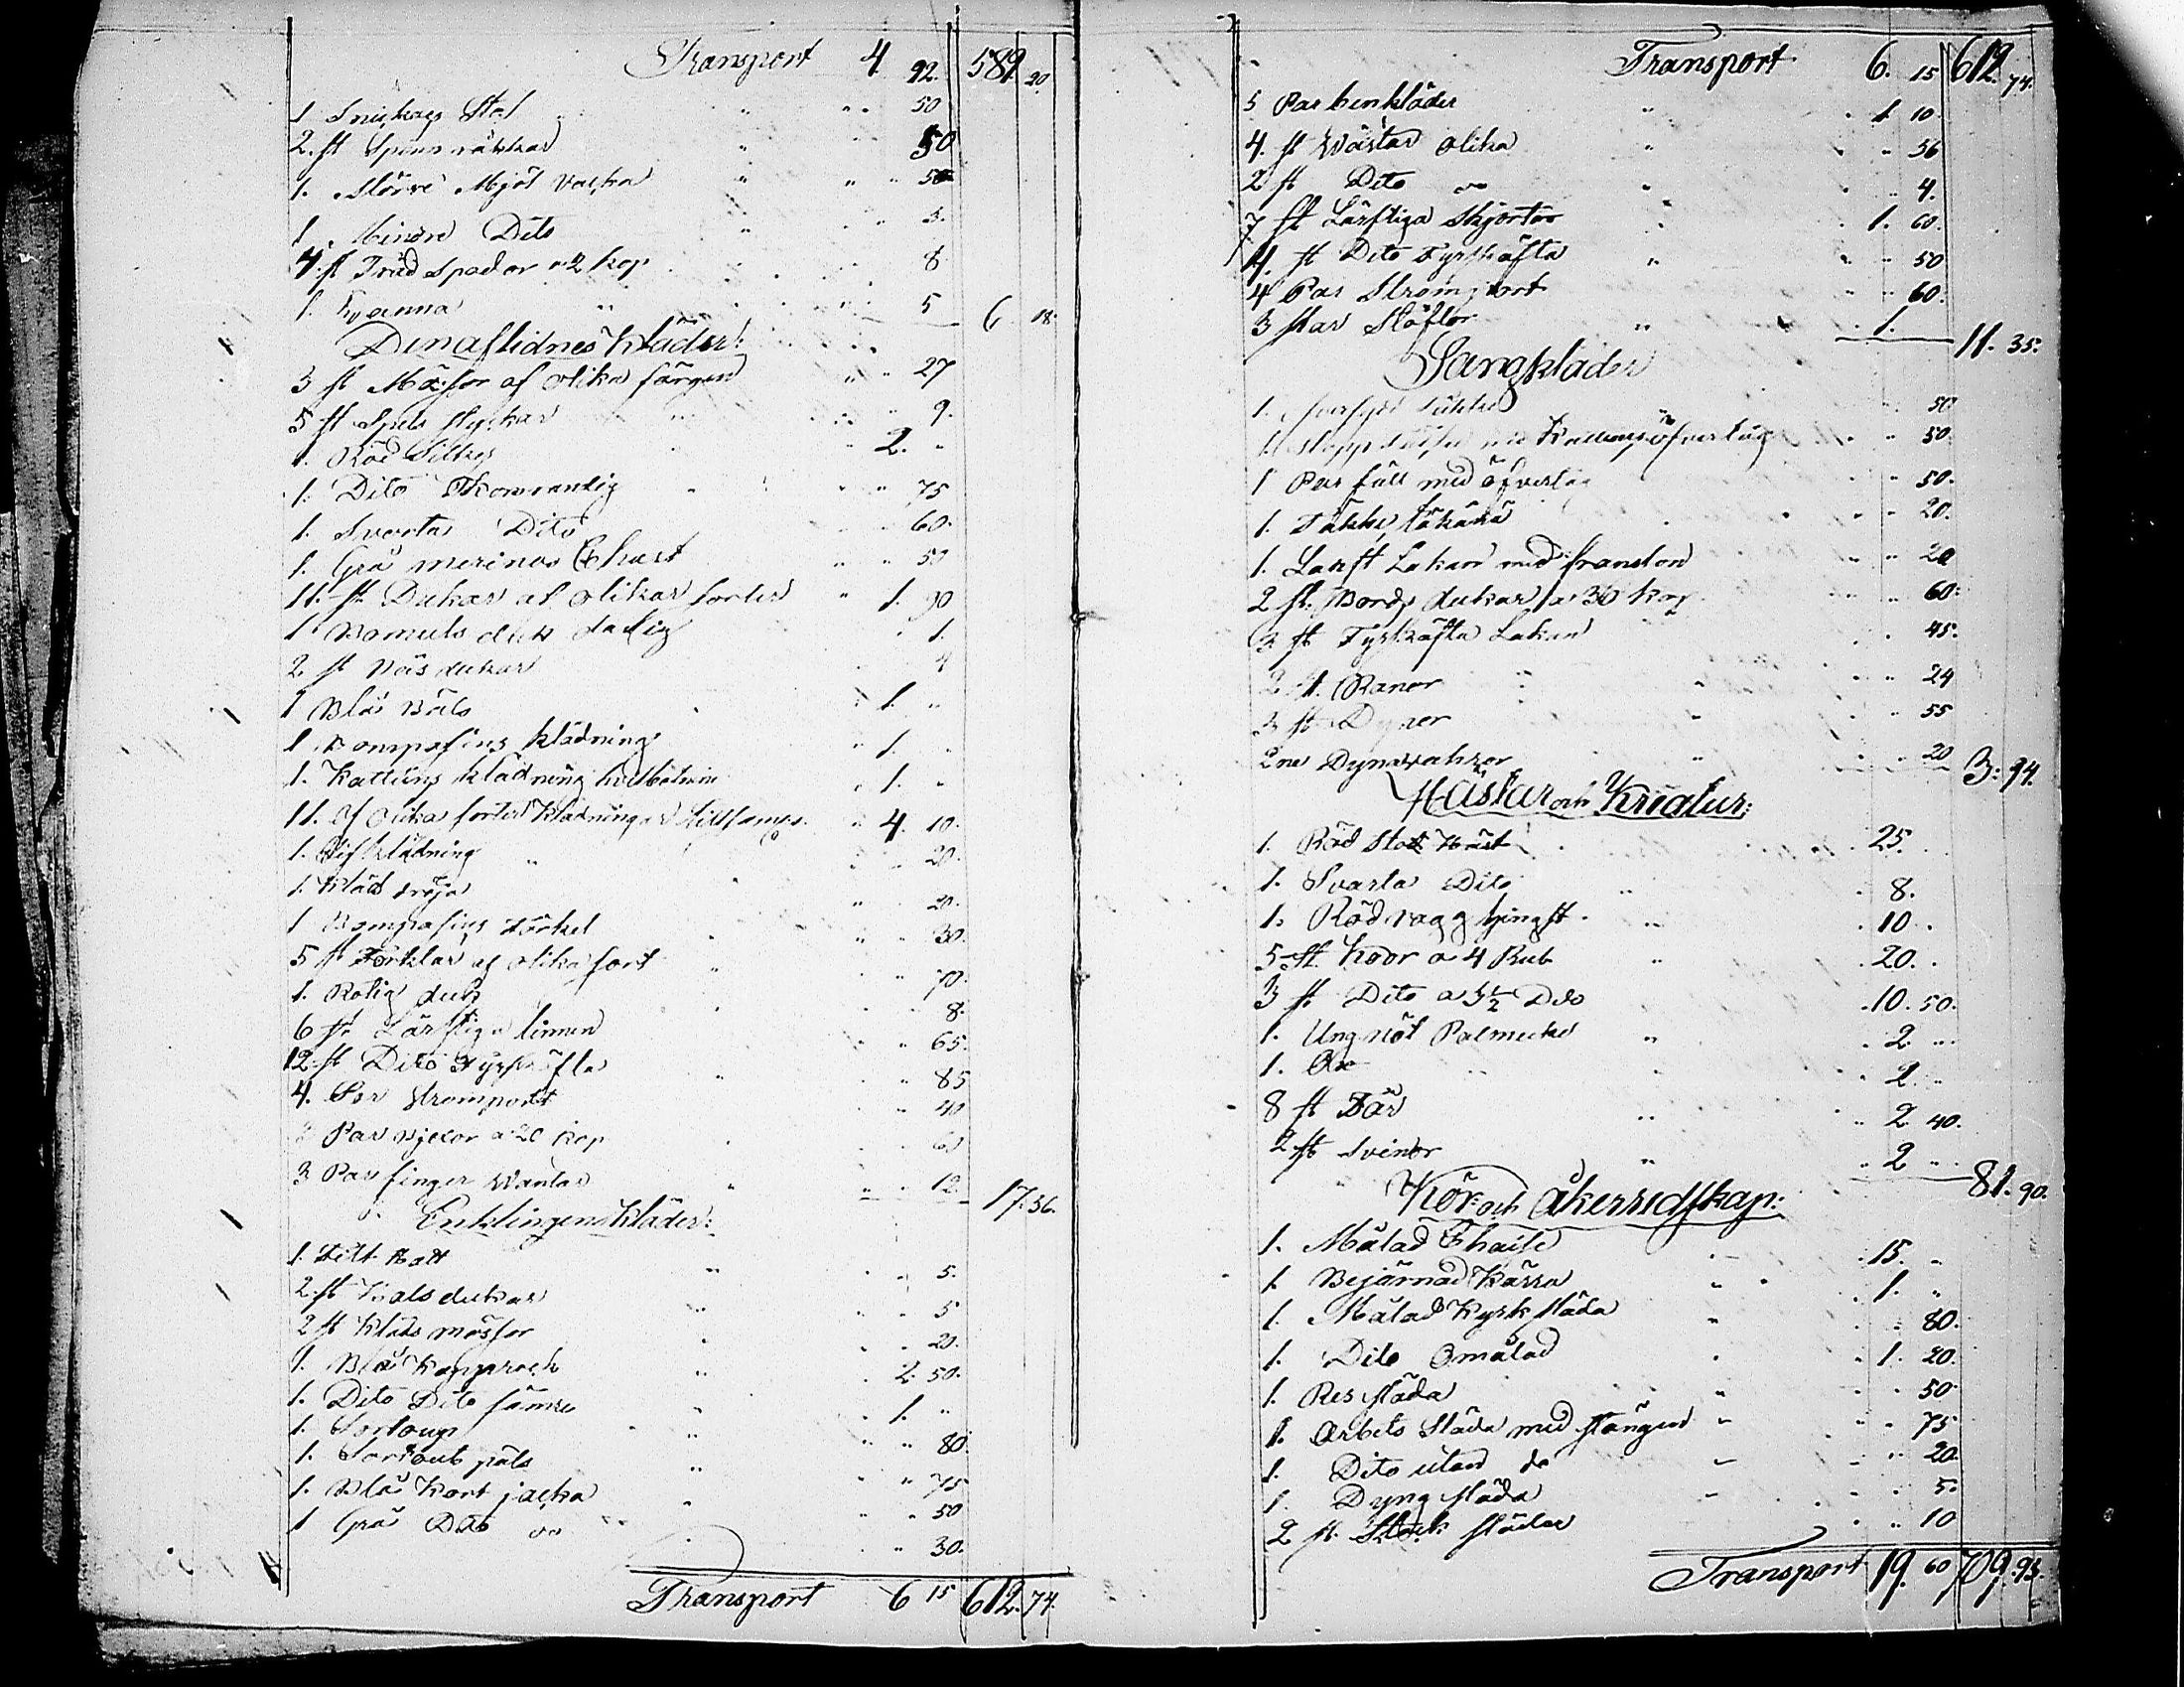 Transport 4. 92. 589. 20.
1 Snickars Stol " " " 50
2. st Spinn råckar " 50
1. Större Mjöl backa " " " 50
1 Mindre Dito " " 5.
4. st Träd Spador a 2 kop 8
1. kanna " 5 6. 18.
Denaflidnes Kläder:
3 st Mössor af olika färgen " " 27
5 st Spets stycken 9.
1. Röd Silkes 2. "
1. Dito Skomrandig " " 75
1. Svarta Dito 60.
1. Grå merinos Chast " " 50
11. st Dukar af olikar sorter " 1. 90
1 Bomuls duk dalig " 1.
2 st Näsdukar 4
1 Blå Päls " 1. "
1 Bompasins klädning " 1.
1. Kattuns klädning " 1. "
11. st Olika sorter Klädningar tillsams. " 4. 10.
1. klädning " 20.
1. Kläd tröja " 20.
1 Bompasins Förkel " " 30.
5 st Förklar af olika sort " 70.
1. duk 8.
6 st Lärftiga linnen " " 65.
12. st Dito Fyrskäfta " " 85
4. Par Stromport " 40
3 Par a 20 kop 60
3 Par finger Vantar " " 12. 17. 56.
Enklingens Kläder:
1. Filt hatt " " 5.
2. st Halsdukar " " 5
2 st Kläds mössor " 20.
1. Blå Kapprock " 2. 50.
1. Dito Dito sämre " 1. "
1. Sortoug " " " 80.
1. Sortout päls " " 75
1. Blå Kort jacka " " 50
1 Grå Dito " " 30.
Transport 6 15 612. 74.
Transport 6. 15 612. 74.
5 Par benkläder " 1 10.
4. st Wästar olika " " 56
2 st Dito " " 4.
7 st Lärftiga Skjortor " 1. 60.
4. st Dito Fyrskäfta " " " 50
4 Par Stromport " " 60.
3 Par Stöflor " 1. 11. 35.
Sängkläder
1. 50
1. Kattuns öfverlag " 50.
1 Par fäll med öfverlag " 50.
1. Täkke " " 20.
1. Larft Lakan med franslon " " 20
2 st. Bords dukar a 30 kop " 60.
3 st Fyrskäfta Lakan " 45.
2 st. Ranor " " " 24
3 st Dyner " " 55
2ne Dynavahror " " 20 3. 94.
Hästar och Kreatur:
1. Röd Sto Häst 25.
1. Svarta Dito " 8.
1. Röd vagg hingst. " 10. .
5 st. Koor a 4 Rub " 20. .
3 st Dito a 3½ Dito 10. 50.
1. Ung nöt " 2. "
1. Ox 2. "
8 st Får " 2 40.
2 st Svinor " 2 " 81. 90.
Kör och åkerredskap:
1. Målad Chaise 15. "
1. Bejärnad Kärra " 1. "
1. Målad Kyrk släda " " 80.
1. Dito Omålad 1. 20.
1. Res släda " 50
1. Arbets Släda med stången " " 75
1. Dito utan do " 20.
1. Dyng släda " 5.
2 st. Stock slädar " 10
Transport 19. 60 709. 93.